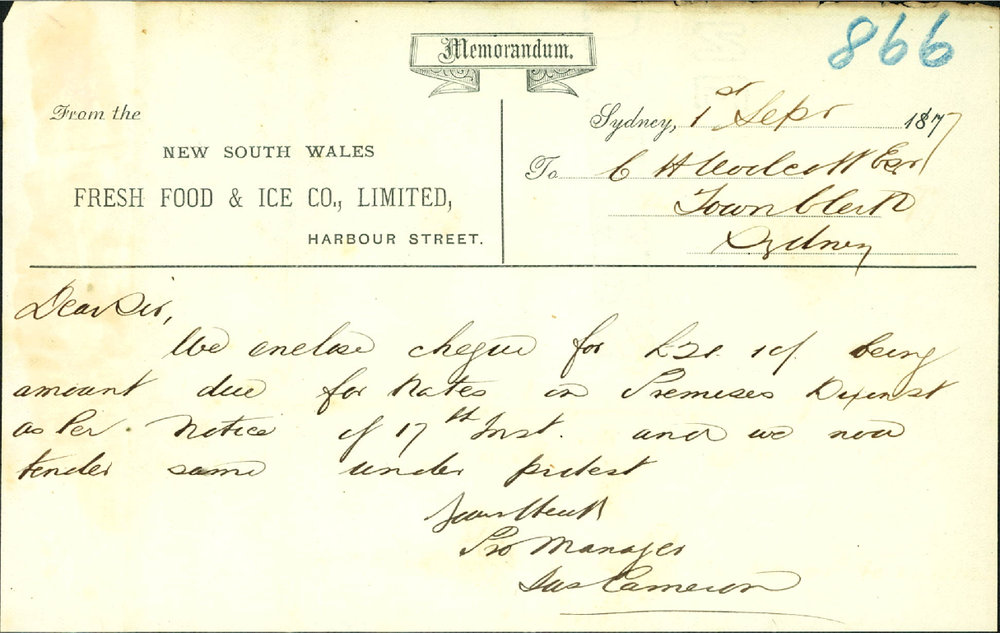 866
Memorandum.
From the
NEW SOUTH WALES
FRESH FOOD & ICE CO., LIMITED,
HARBOUR STREET.
Sydney, 1st Sepr 1877
To C H Woolcott Esq
Town Clerk
Sydney
Dear Sir,
We enclose cheque for being
amount due for Rates on Premises Dixon st
as Per Notice of 17th Inst. and we now
tender same under protest
Yours
Pro Manager
Jas Cameron